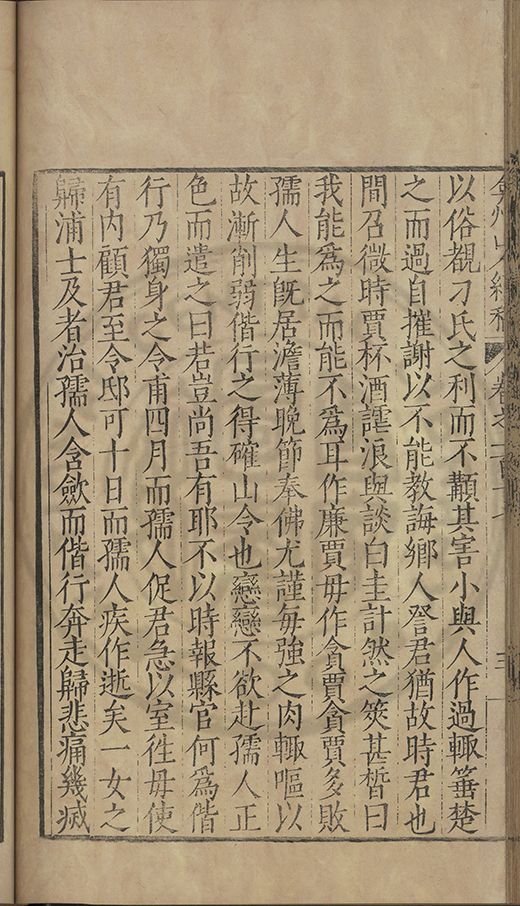 弇州山人續稿 卷之一百十七 三
以俗覩刁氏之利而不顧其害小與人作過輒箠楚
之而過自摧謝以不能教誨鄉人詧君猶故時君也
間召微時賈杯酒謔浪與談白圭計然之筴甚晳曰
我能為之而能不為耳作廉賈毋作貪賈貪賈多敗
孺人生旣居澹薄晚節奉佛尤謹每強之肉輒嘔以
故漸削弱偕行之得確山令也戀戀不欲赴孺人正
色而遣之曰若豈尚吾有耶不以時報縣官何為偕
行乃獨身之令甫四月而孺人促君急以室徃毋使
有內顧君至令邸可十日而孺人疾作逝矣一女之
歸浦士及者治孺人含歛而偕行奔走歸悲痛幾烕